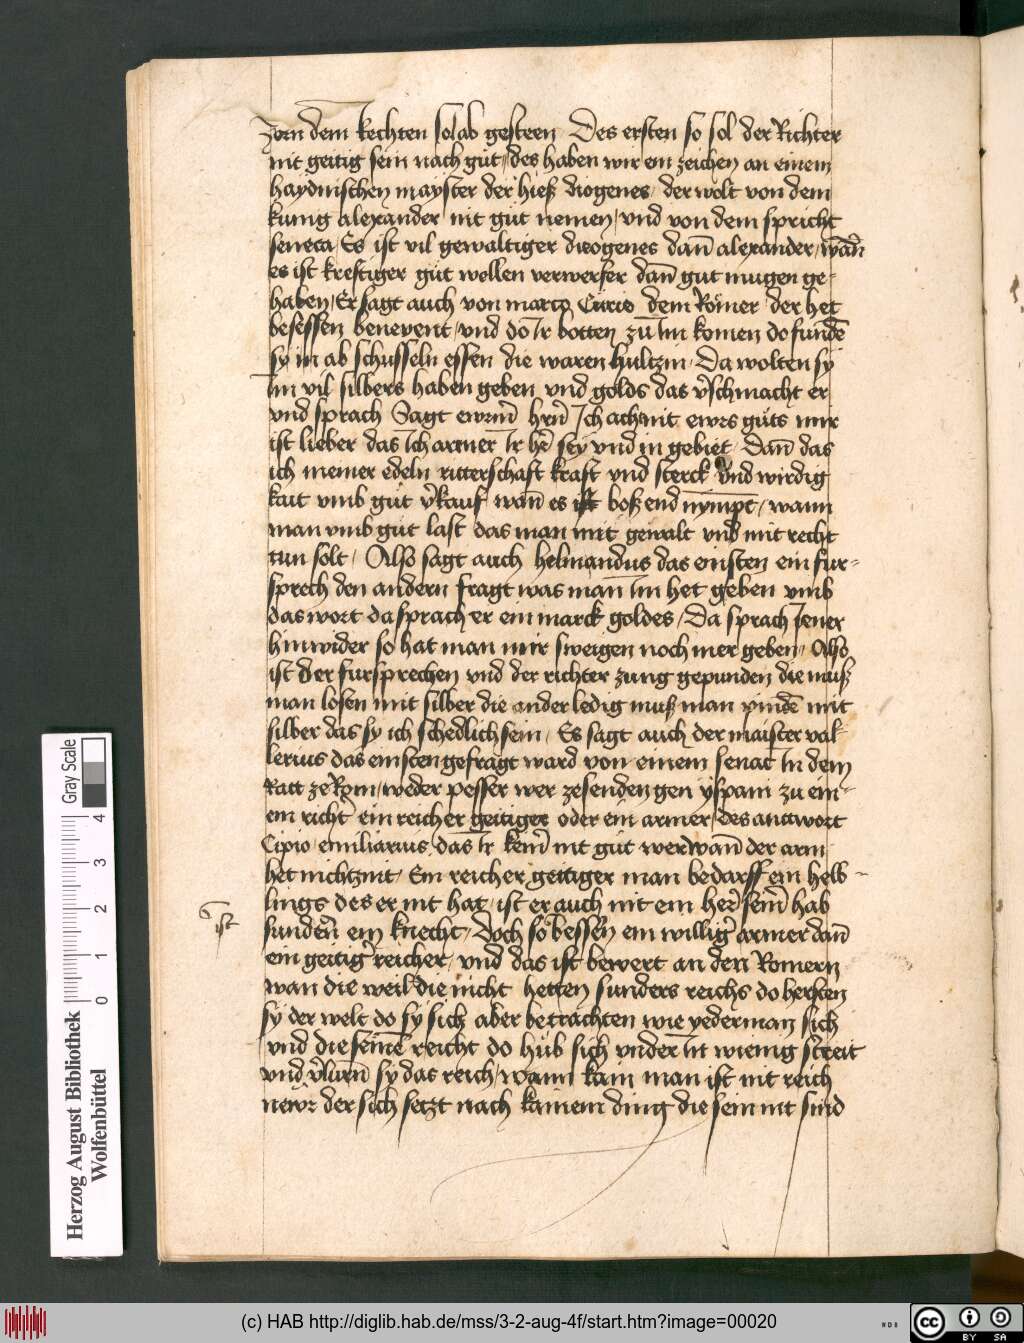 von dem rechten sol ab gesteen / Des ersten so sol der Richter
nit geitig sein nach gut / des haben wir ein zeichen an einem
haydnischen mayster der hieß diogenes / der wolt von dem
kunig alexander nit gut nemen / vnd von dem spricht
seneca / Es ist vil gewaltiger dyogenes dañ alexander / wañ
es ist kreftiger gut wellen verwerfer dañ gut mugen ge-
haben / Er sagt auch von marco Curio dem Römer der het
besessen benevent / vnd do Ir botten zu im komen do fundē
sy in ab schusseln essen die waren hultzin / Da wolten sy
im vil silbers haben geben vnd golds das v̄schmacht er
vnd sprach Sagt ewrn̄ hrn̄ Ich acht nit ewrs guts mir
ist lieber das Ich armer Ir hr̄ sey vnd in gebiet / Dañ das
ich meiner edeln ritterschaft kraft vnd sterck vnd wirdig
kait vmb gut v̄kauf wañ es ist boß end nympt / wann
man vmb gut last das man mit gewalt vnd mit recht
tun solt / Also sagt auch helmandus das einsten ein fur-
sprech den andern fragt was man Im het geben vmb
das wort da sprach er ein marck goldes / Da sprach Jener
hinwider so hat man mir sweigen noch mer geben / Also
ist der fursprechen vnd der richter zung gepunden die muß
man losen mit silber die ander ledig muß man pindē mit
silber das sy ich schedlich sein / Es sagt auch der maister val-
lerius das einsten gefragt ward von einem senat In dem
Ratt ze Rom / weder pesser wer ze senden gen yspani zu ein-
em richt̄ ein reicher geitiger oder ein armer / des antwort
Cipio emiliarius das Ir kein̄ nit gut wer wañ der arm
het nichtznit / Ein reicher geitiger man bedarff ein helb-
lings des er nit hat / ist er auch nit ein her̄ sein̄ hab
ist
sunder̄n ein knecht / Doch so bessen ein williḡ armer dañ
ein geitiḡ reicher / vnd das ist bewert an den Romern
wan die weil die nicht hetten sunders reichs do herschten
sy der welt do sy sich aber betrachten wie yederman sich
vnd die seinē reicht do hub sich vnder In wienig streit
vnd v̄lurn̄ sy das reich / wann kain man ist nit reich
newr der sich setzt nach kainem ding die sein nit sind
Gray Scale
4 3 2 1 0
Herzog August Bibliothek
Wolfenbüttel
(c) HAB http://diglib.hab.de/mss/3-2-aug-4f/start.htm?image=00020
WDB
cc BY SA